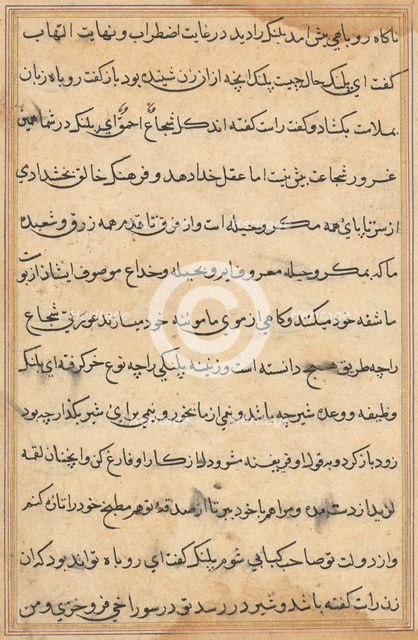 ناکاه روباهی پیش امد پلنک را دید در غایت اضطراب و نهایت التهاب
کفت ای پلنک حال چیست پلنک انچه از ان زن شنیده بود باز کفت روباه زبان
بملامت بکشاد و کفت راست کفته اند کل شجاع احمق ای پلنک در شما همین
غرور شجاعت بیش نیست اما عقل خدا دهد و فرهنک خالق بخشد ادمی
از سر تا پای همه مکر و حیله است و از فرق تا قدم همه زرق و شعبده
ما که بمکر و حیله معروفایم و بحیله و خداع موصوف ایشان از پوست
ما شقه خود میکنند و کاهی از موی ما موئینه خود میسازند عورتی شجاع
را چه طریق هیچ دانسته است و زنینه پلنکی را چه نوع خر کرفته ای پلنک
وظیفه و وعده شیر چه باشد و نیمی از ما بخور و نیمی برای شیر بکذار چه بود
زود باز کرد و بقول او فریفته مشو و دل از کار او فارغ کن و اینچنان لقمه
لذید از دست مده و مرا هم با خود ببر تا از صدقه تو هم مطبخ خود را تازه کنم
و از دولت تو صاحب کبابی شوم پلنک کفت ای روباه تواند بود که ان
زن راست کفته باشد و شیر در رسد تو در سوراخی فرو خزی و من